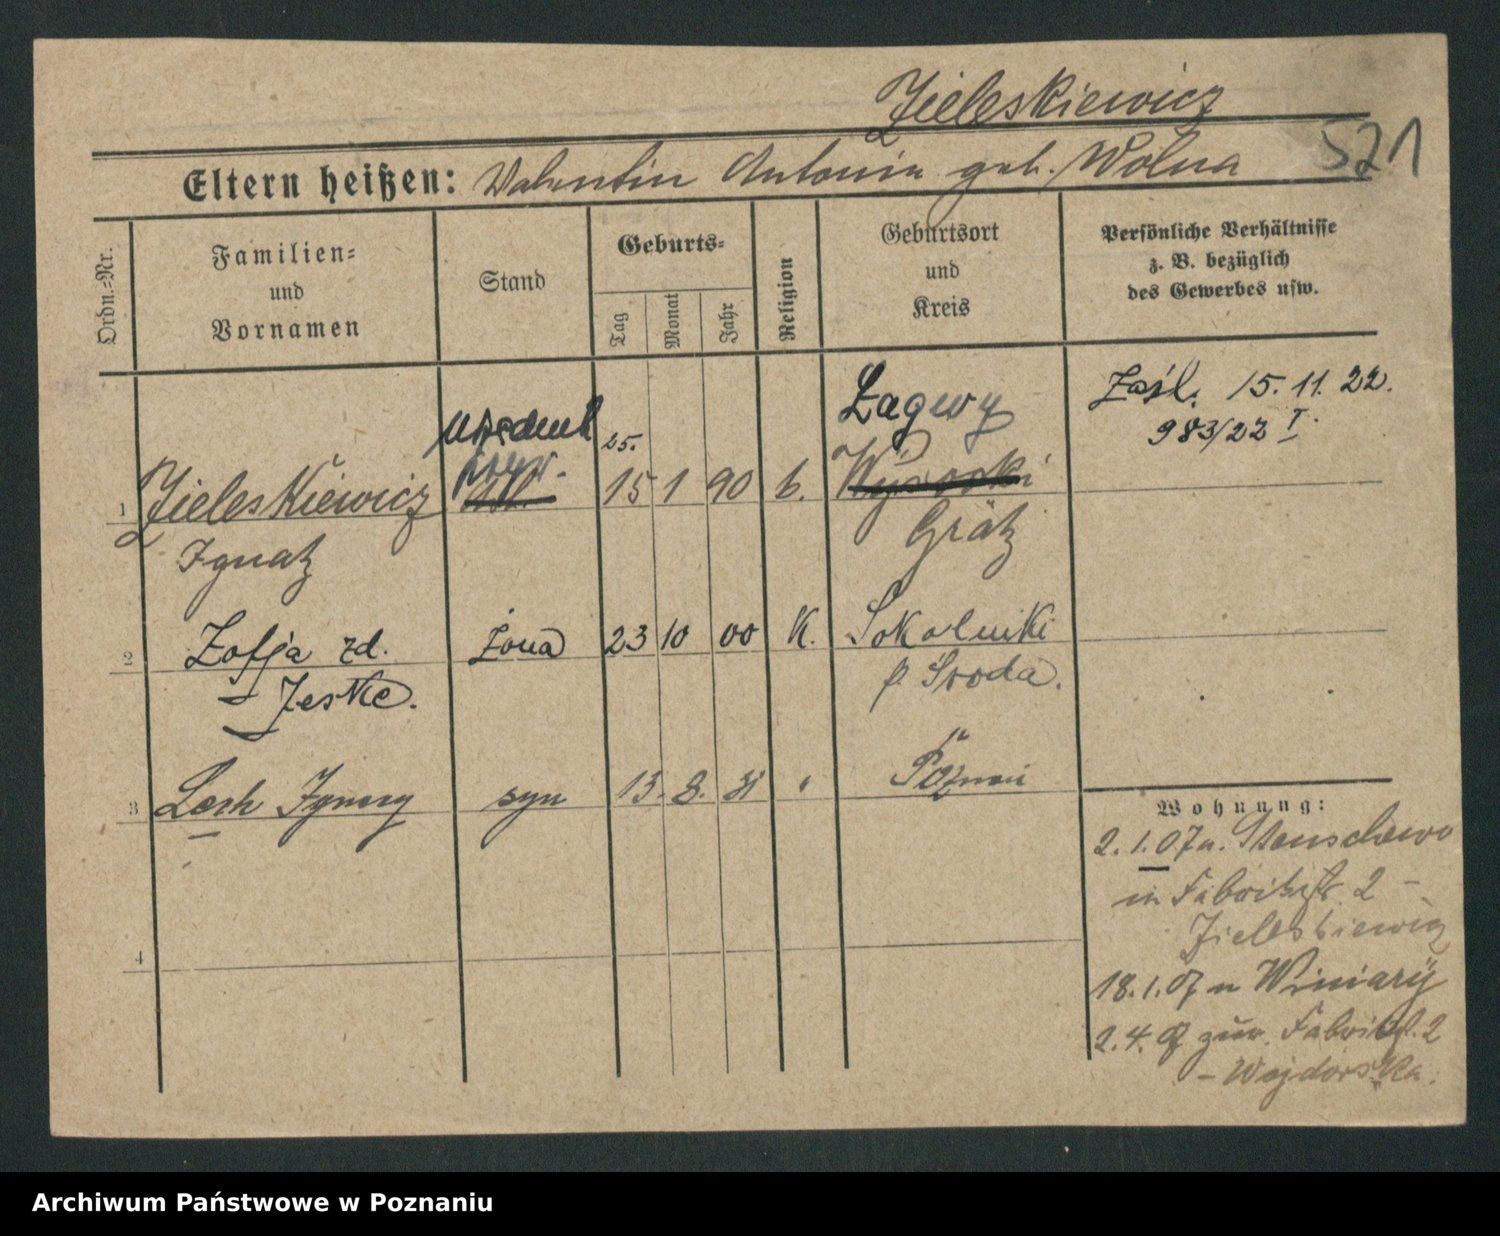 Zieleskiewicz
521
Eltern heißen: Valentin Antonia geb. Wolna
Ordn.=Nr.
Familien=
und
Vornamen
Stand
Geburts=
Tag
Monat
Jahr
Religion
Geburtsort
und
Kreis
Persönliche Verhältnisse
z. B. bezüglich
des Gewerbes usw.
1 Zieleskiewicz
Ignatz
25.
15 1 90 k.
Łagwy
Wysocki
Grätz
Zaśl. 15. 11. 22.
983/22 I.
2 Zofja zd. żona 23 10 00 K. Sokolniki
Jeske. p. Środa.
3 Lech Ignacy syn 13. 8. 31 " Poznań
4
Wohnung:
2. 1. 07 n. Stenschewo
in Fabrikstr. 2 –
Zieleskiewicz
18. 1. 07 n Winiary
2. 4. 07 zur. Fabrikst. 2
– Wojdorska.
Archiwum Państwowe w Poznaniu